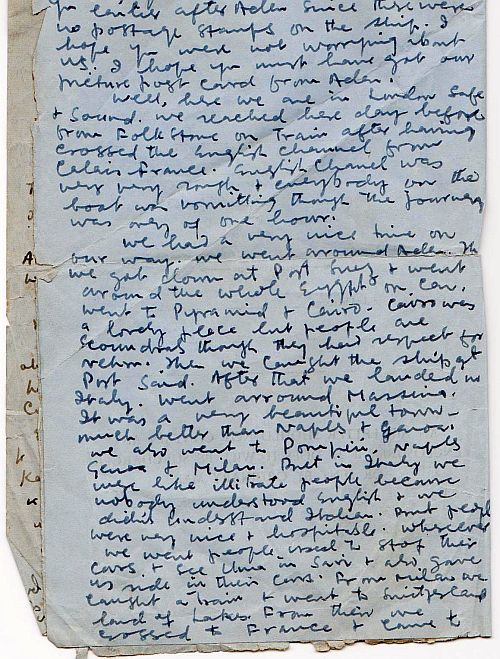 yu earlier after Aden since there were
no postage stamps on the ship. I
hope yu were not worrying about
us. I hope yu must have got our
picture post card from Aden.
Well, here we are in London Safe
& Sound. we reached here day before
from Folkstone on Train after having
crossed the English Channel from
Calais France. English Channel was
very very rough & everybody on the
boat was vomitting though the journey
was only of one hour.
we had a very nice time on
our way. we went around Aden. Th
we got down at Port Suez & went
around the whole Egypt on car.
went to Pyramid & Cairo. Cairo was
a lovely place but people are
Scoundrals though they had respect for
Nehru. Then we caught the ship at
Port Said. After that we landed in
Italy. went arround Massina.
It was a very beautiful town —
much better than Naples & Genoa.
we also went to Pompeii, Naples
Genoa & Milan. But in Italy we
were like illitrate people because
nobody understood English & we
didn't understand Italian. But people
were very nice & hospitable. wherever
we went people used to stop their
cars & see Uma in Sari & also gave
us ride in their cars. From Milan we
caught a train & went to Switzerland
land of Lakes. From their we
crossed to France & came to